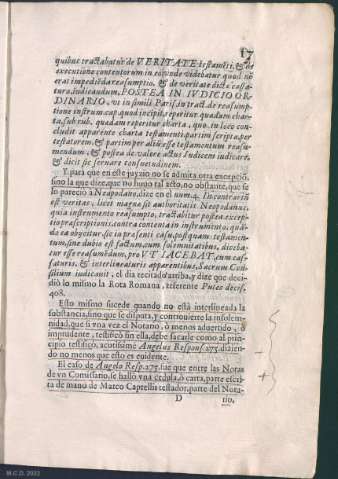 17
quibus tractabatur de VERITATE testamẽti, & de
executione contentorum in eo, vnde videbatur quod nõ
erat impediẽda reasumptio, & de veritate dicta
tura iudicandum, POSTEA IN IVDICIO OR-
DINARIO, vt in simili Paris. in tract. de reasump-
tione instrum. cap. quod incipit, reperitur quadam char-
ta, sub rub. quadam reperitur charta, quo in loco con-
cludit apparente charta testamenti partim scripta, per
testatorem, & partim per aliũ esse testamentum reasu-
mendum, & postea de valore actus Iudicem iudicare,
& dicit sic seruare consuetudinem.
Y para que en este juyzio no se admita otra excepció,
sino la que dize, que no huuo tal acto, no obstante, que se
lo pareciò a Neapodano, dize en el num. 4. In contrariũ
est veritas, licet magna sit authoritatis Neopodanus,
quia instrumento reasumpto, tractabitur postea excep-
tio præscriptionis contra contenta in instrumento, quãdo
ea obycitur, sic in præsenti casu, post quam testamen-
tum, sine dubio est factum, cum solemnitatibus, diceba-
tur esse reasumẽdum, pro VT IACEBAT, cum cas-
saturis, & interlineaturis apparentibus, Sacrum Con-
silium iudicauit, el dia recitada arriba, y dize que deci-
diò lo mismo la Rota Romana, referente Puteo decis.
408.
Esto mismo sucede quando no està interlineada la
substancia, sino que se disputa, y controuierte la insolem-
nidad, que si vna vez el Notario, ò menos aduertido, ò
imprudente, testificò sin ella, debe sacarle como al prin-
cipio testificò, acutissime Angelus Respons. 275. dizien-
do no menos que esto es euidente.
El caso de Angelo Resp. 275. fue que entre las Notas
de vn Comissario, se hallò vna cedula, ò carta, parte escri-
ta de mano de Marco Captellis testador, parte del Nota-
D rio,
M.C.D. 2022